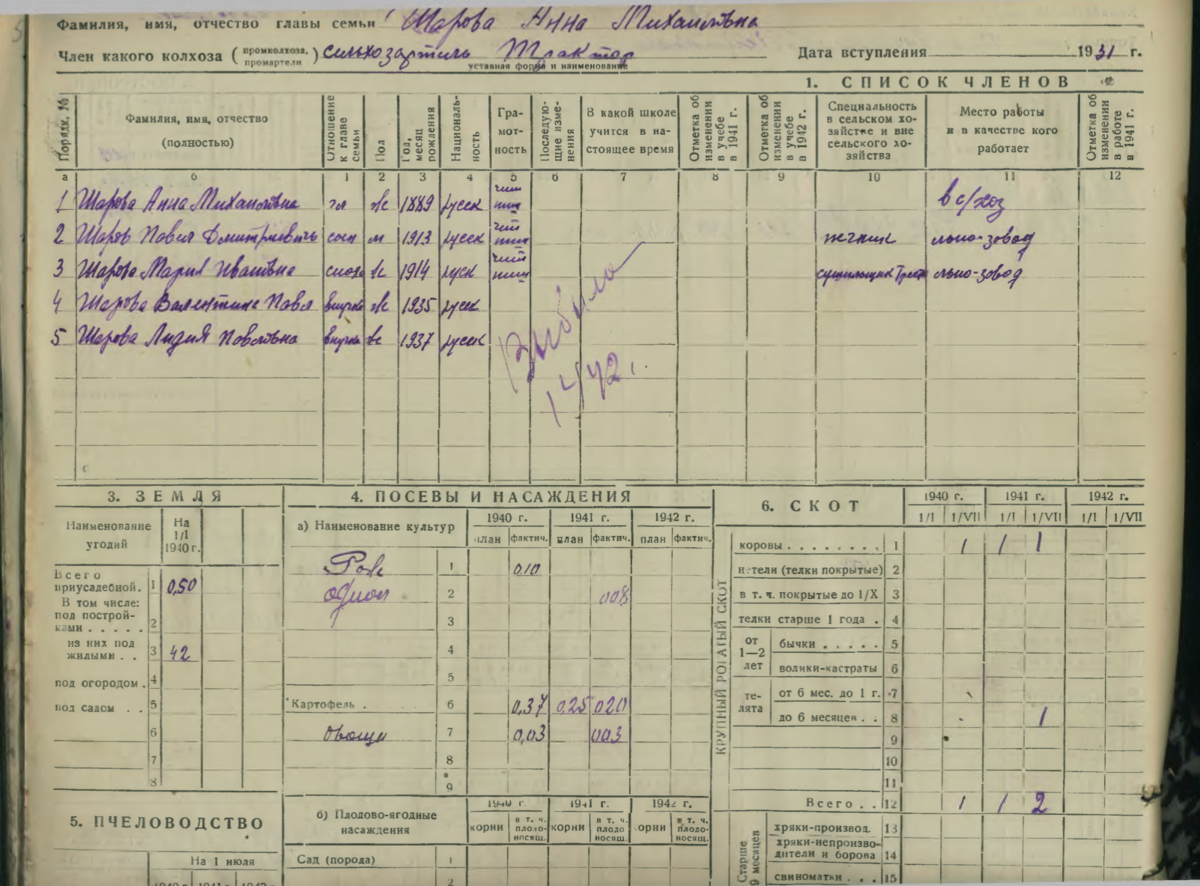 Фамилия, имя, отчество главы семьи Шарова Анна Михайловна
Член какого колхоза (промколхоза, промартели) сельхозартель Трактор Дата вступления 1931 г.
уставная форма и наименование
1. СПИСОК ЧЛЕНОВ
Порядк. № Фамилия, имя, отчество (полностью) Отношение к главе семьи Пол Год, месяц рождения Националь-ность Гра-мот-ность Последую-щие изме-нения В какой школе учится в на-стоящее время Отметка об изменении в учебе в 1941 г. Отметка об изменении в учебе в 1942 г. Специальность в сельском хо-зяйстве и вне сельского хо-зяйства Место работы и в качестве кого работает Отметка об изменении в работе в 1941 г.
а б 1 2 3 4 5 6 7 8 9 10 11 12
1 Шарова Анна Михайловна гл ж 1889 русск в с/хоз
2 Шаров Павел Дмитриевич сын м 1913 русск печник льно-завод
3 Шарова Мария Ивановна сноха ж 1914 руск льно-завод
4 Шарова Валентина Павл внучка ж 1935 руск
5 Шарова Лидия Павловна внучка ж 1937 русск
Выбыла
3. ЗЕМЛЯ
Наименование угодий На 1/I 1940 г.
Всего приусадебной. 1 0,50
В том числе:
под построй-ками . . . . . 2
из них под жилыми . . 3 42
под огородом . 4
под садом . . 5
6
7
8
5. ПЧЕЛОВОДСТВО
На 1 июля
1940 г. 1941 г. 1942 г.
4. ПОСЕВЫ И НАСАЖДЕНИЯ
а) Наименование культур 1940 г. 1941 г. 1942 г.
план фактич. план фактич. план фактич.
1 0,10
2 008
3
4
5
Картофель . 6 0,37 0,25 020
Овощи 7 0,03 003
8
9
б) Плодово-ягодные насаждения 1940 г. 1941 г. 1942 г.
корни в т. ч. плодо-носящ. корни в т. ч. плодо носящ. орни в т. ч. плодо-носящ.
Сад (порода) 1
2
6. СКОТ
1940 г. 1941 г. 1942 г.
1/I 1/VII 1/I 1/VII 1/I 1/VII
КРУПНЫЙ РОГАТЫЙ СКОТ
коровы . . . . . . . . 1 1 1 1
нетели (телки покрытые) 2
в т. ч. покрытые до 1/X 3
телки старше 1 года . 4
от 1—2 лет бычки . . . . . 5
волики-кастраты 6
те-лята от 6 мес. до 1 г. 7
до 6 месяцев . . 8 1
9
10
11
Всего . . 12 1 1 2
Старше 9 месяцев
хряки-производ. 13
хряки-непроизво-дители и борова 14
свиноматки . . . 15